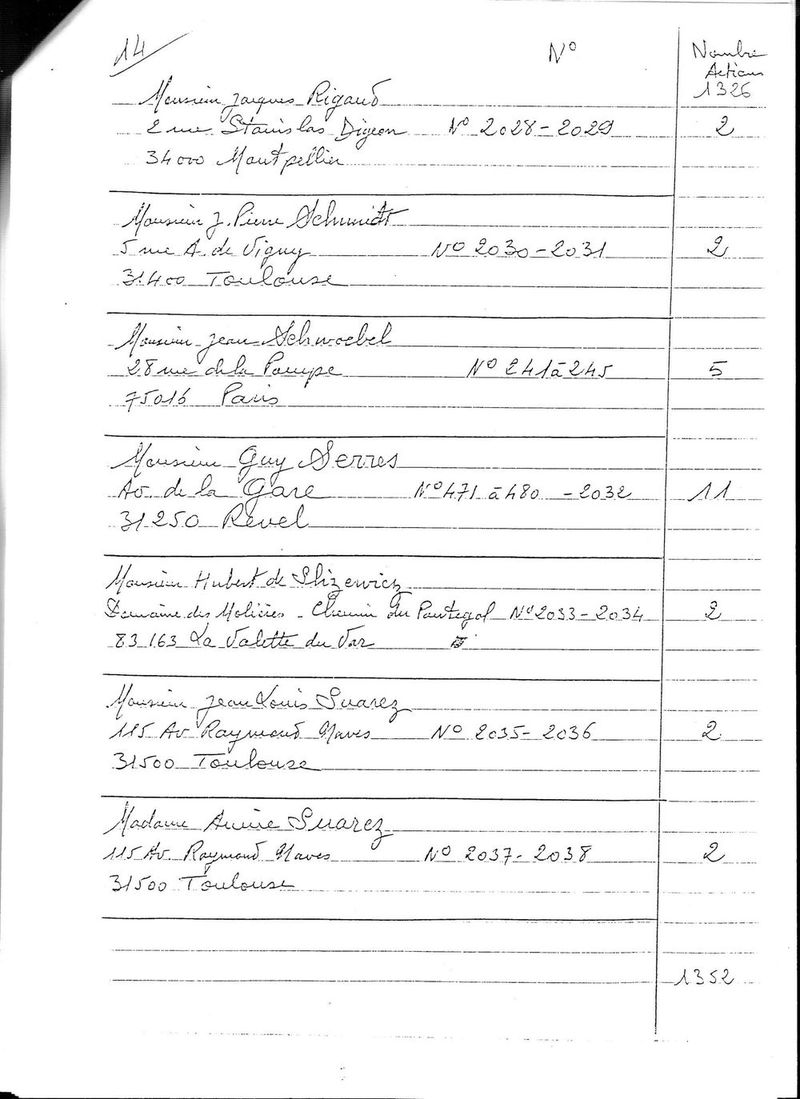 14 N° Nombre
Actions
1326
Monsieur Jacques Rigaud
2 rue Stanislas Digeon N° 2028-2029 2
34000 Montpellier
Monsieur J. Pierre Schmidt
5 rue A. de Vigny N° 2030-2031 2
31400 Toulouse
Monsieur Jean Schwoebel
28 rue de la Pompe N° 241 à 245 5
75016 Paris
Monsieur Guy Serres
Av. de la Gare N° 471 à 480 - 2032 11
31250 Revel
Monsieur Hubert de Slizewicz
Domaine des Molières - Chemin du Pantegol N° 2033-2034 2
83163 La Valette du Var
Monsieur Jean Louis Suarez
115 Av Raymond Naves N° 2035-2036 2
31500 Toulouse
Madame Annie Suarez
115 Av. Raymond Naves N° 2037-2038 2
31500 Toulouse
1352